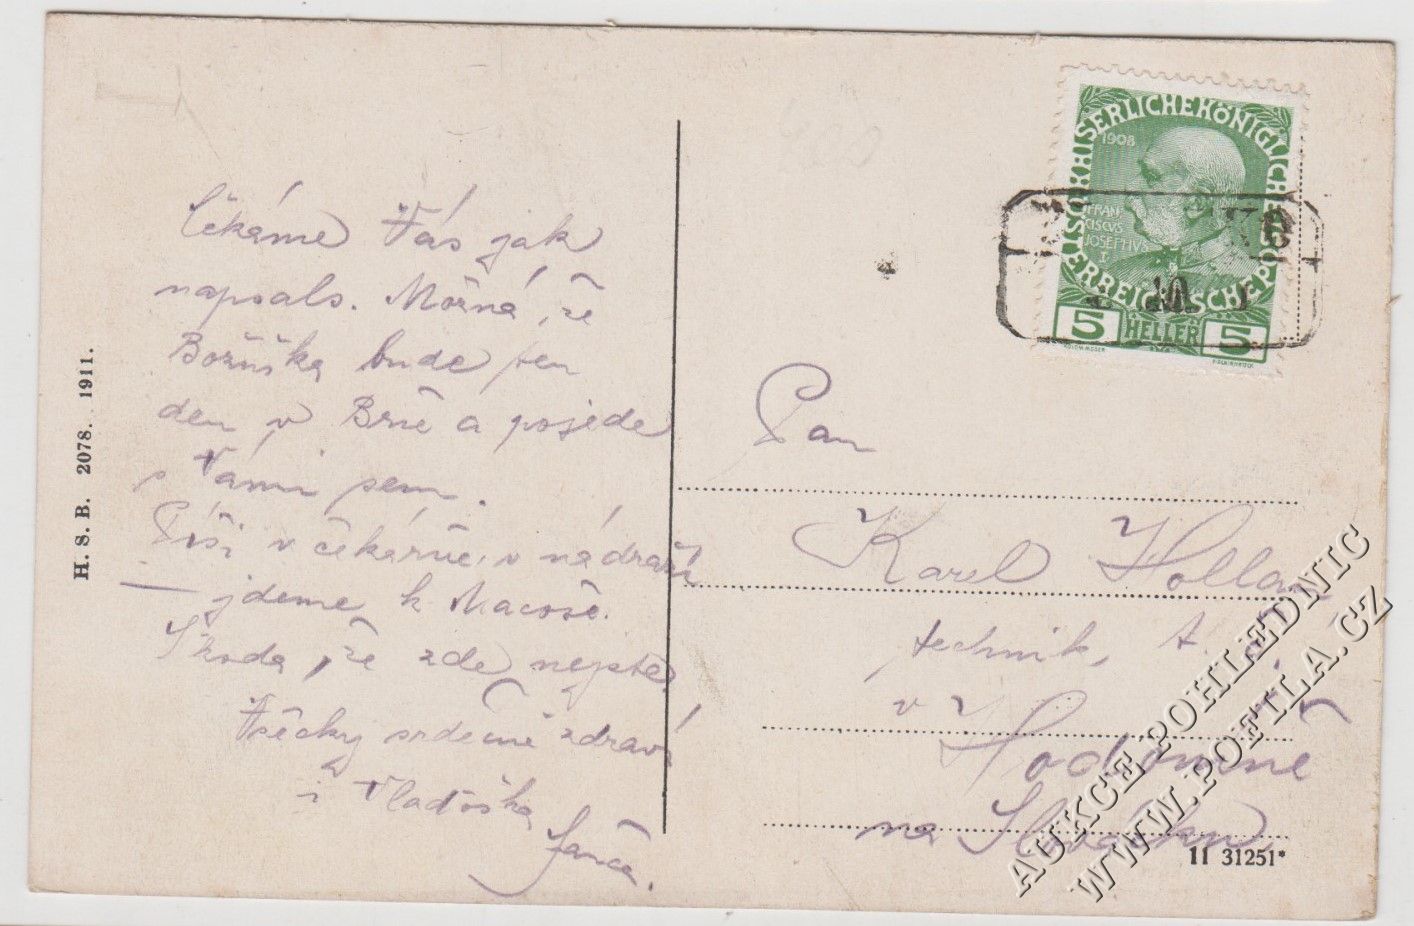 Čekáme Vás jak
napsals. Možná, že
Boženka bude ten
den v Brně a pojede
s Vámi sem.
Píši v čekárně v nádraží
— jdeme k Macoše.
Škoda, že zde nejste
Všecky srdečně zdraví
i Vlaďoška
Janča.
H. S. B. 2078. 1911.
ÖSTERREICHISCHE POST
KAISERLICHEKÖNIGLICHE
1908
FRAN
CISCVS
JOSEPHVS
I
5 HELLER 5
Pan
Karel Hollan
technik, t. č.
v Hodoníně
na Slovácku
11 31251*
AUKCE POHLEDNIC
WWW.POFILA.CZ